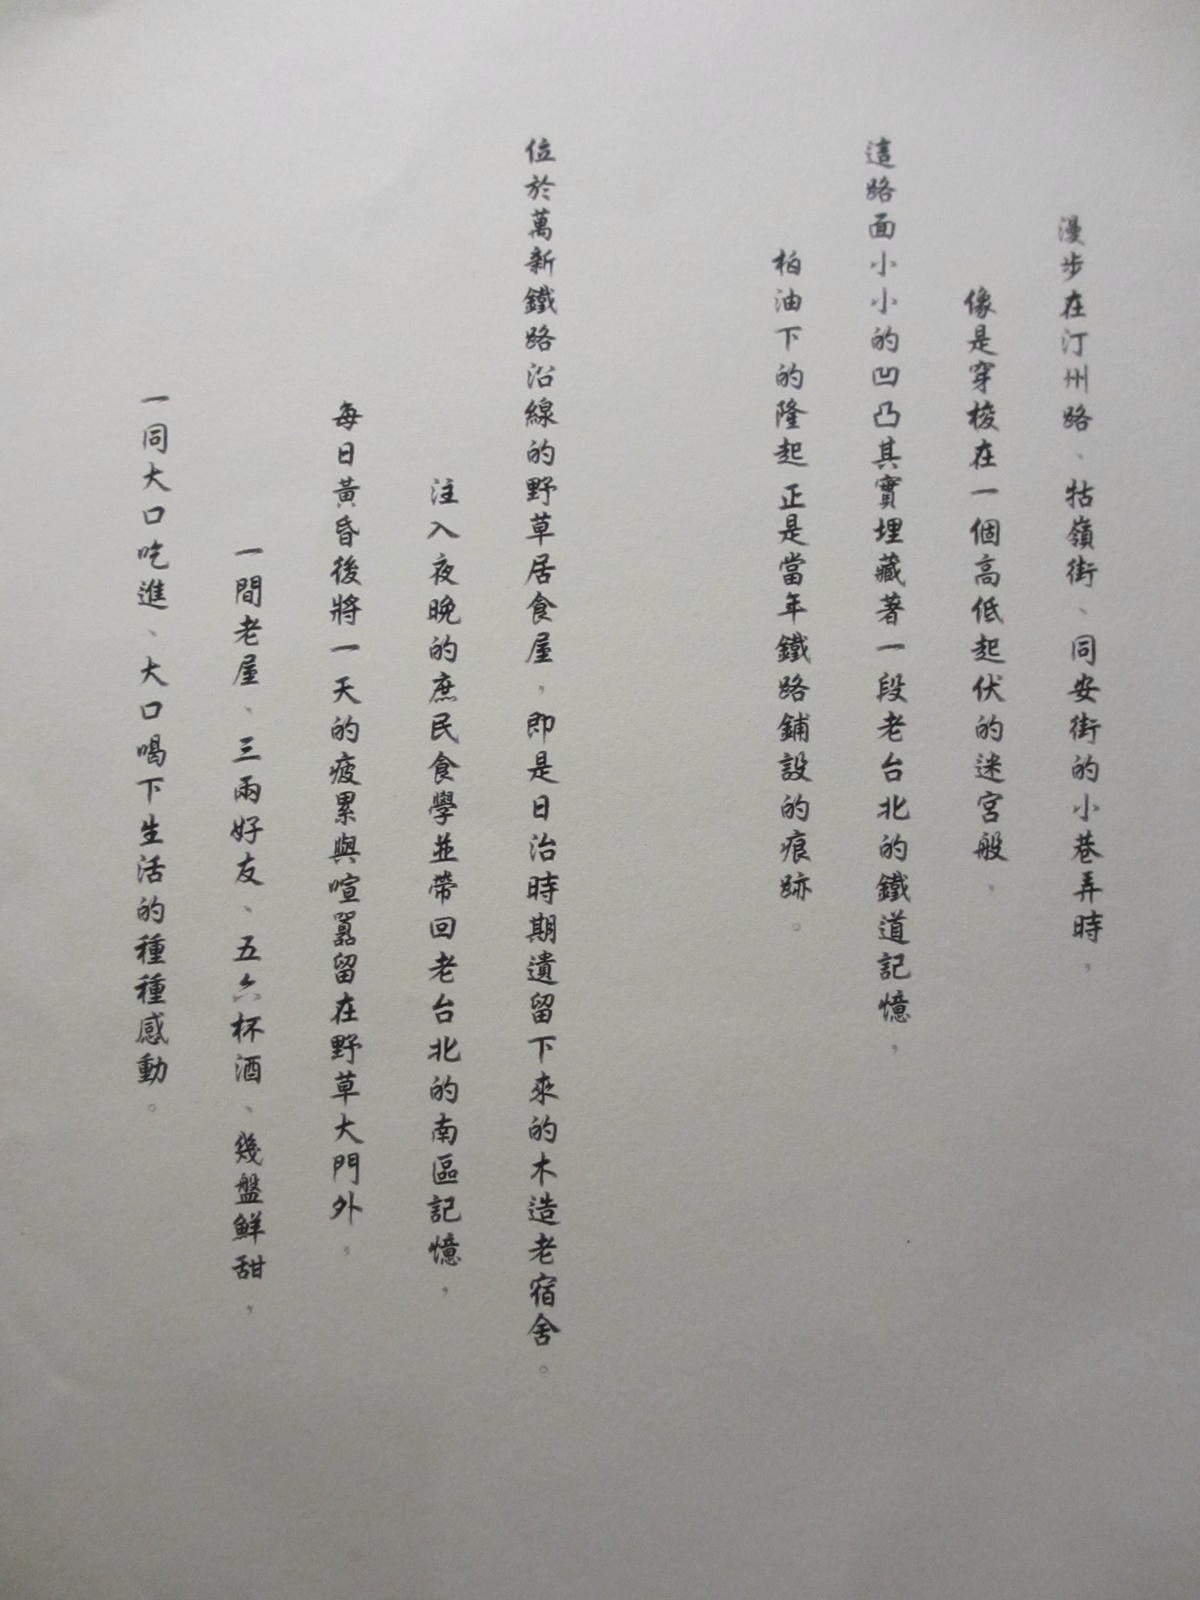 漫步在汀州路、牯嶺街、同安街的小巷弄時，
像是穿梭在一個高低起伏的迷宮般，
這路面小小的凹凸其實埋藏著一段老台北的鐵道記憶，
柏油下的隆起 正是當年鐵路鋪設的痕跡。
位於萬新鐵路沿線的野草居食屋，即是日治時期遺留下來的木造老宿舍。
注入夜晚的庶民食學並帶回老台北的南區記憶，
每日黃昏後將一天的疲累與喧囂留在野草大門外，
一間老屋、三兩好友、五六杯酒、幾盤鮮甜，
一同大口吃進、大口喝下生活的種種感動。